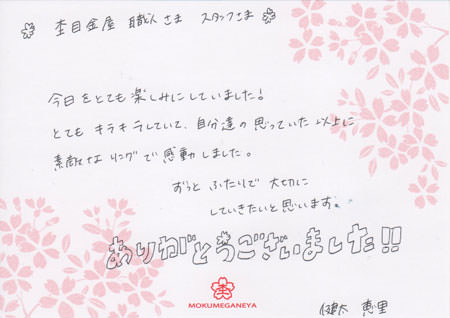 杢目金屋 職人さま スタッフさま
今日をとても楽しみにしていました!
とてもキラキラしていて、自分達の思っていた以上に
素敵なリングで感動しました。
ずっと ふたりで 大切に
していきたいと思います。
ありがとうございました!!
MOKUMEGANEYA
健太 恵里